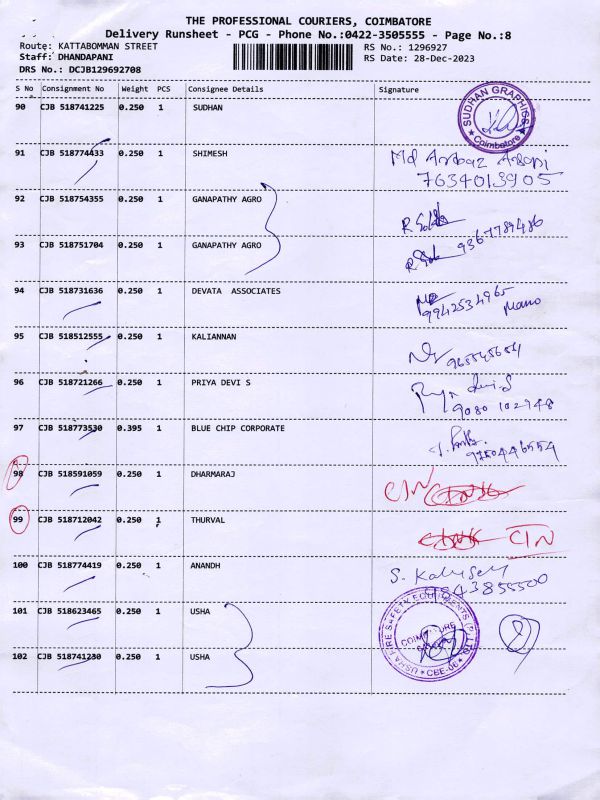 THE PROFESSIONAL COURIERS, COIMBATORE
Delivery Runsheet - PCG - Phone No.:0422-3505555 - Page No.:8
Route: KATTABOMMAN STREET
RS No.: 1296927
Staff: DHANDAPANI
RS Date: 28-Dec-2023
DRS No.: DCJB129692708
S No Consignment No Weight PCS Consignee Details Signature
90 CJB 518741225 0.250 1 SUDHAN
SUDHAN GRAPHICS
Coimbatore
91 CJB 518774433 0.250 1 SHIMESH Md Arbaz
7634013905
92 CJB 518754355 0.250 1 GANAPATHY AGRO
93 CJB 518751704 0.250 1 GANAPATHY AGRO 9367789486
94 CJB 518731636 0.250 1 DEVATA ASSOCIATES
9942534965 Mano
95 CJB 518512555 0.250 1 KALIANNAN
96 CJB 518721266 0.250 1 PRIYA DEVI S
9080 102948
97 CJB 518773530 0.395 1 BLUE CHIP CORPORATE
9750446554
98 CJB 518591059 0.250 1 DHARMARAJ CIN
99 CJB 518712042 0.250 1 THURVAL CIN
100 CJB 518774419 0.250 1 ANANDH
9843855500
101 CJB 518623465 0.250 1 USHA
USHA FIRE SAFETY EQUIPMENTS (P) LTD
COIMBATORE
CBE-06
102 CJB 518741230 0.250 1 USHA